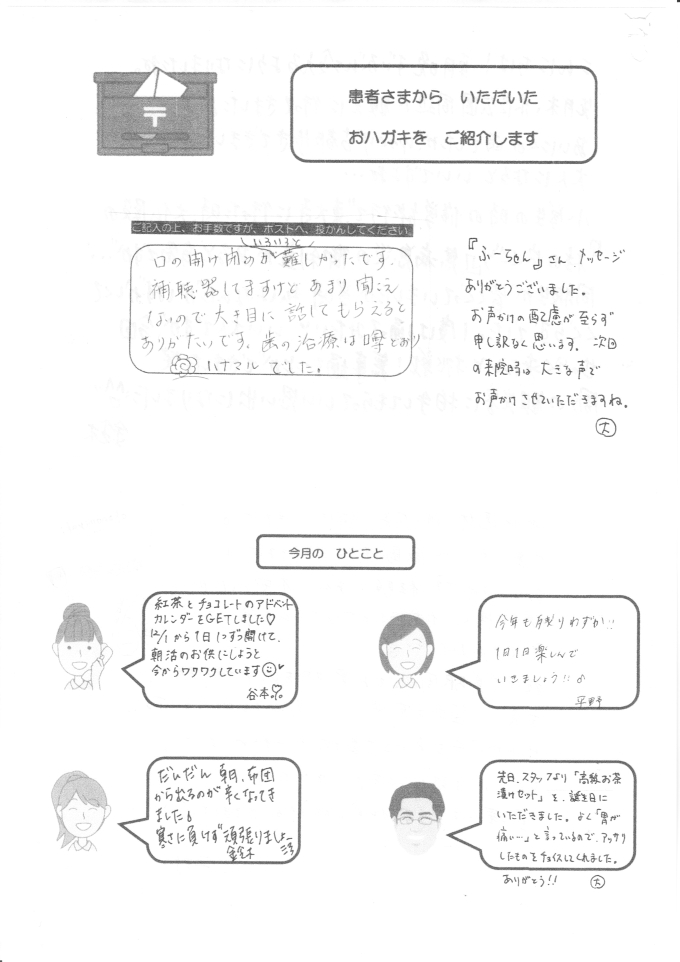 患者さまから　いただいた
おハガキを　ご紹介します
ご記入の上、お手数ですが、ポストへ、投かんしてください。
いろいろと
口の開け閉めが難しかったです。
補聴器してますけど あまり聞こえ
ないので大き目に話してもらえると
ありがたいです。歯の治療は噂とおり
ハナマルでした。
『ふーちゃん』さん メッセージ
ありがとうございました。
お声かけの配慮が至らず
申し訳なく思います。次回
の来院時は大きな声で
お声かけさせていただきますね。
大
今月の　ひとこと
紅茶とチョコレートのアドベント
カレンダーをGETしました♡
12/1から1日1つずつ開けて、
朝活のお供にしようと
今からワクワクしています
谷本
今年も残りわずか!!
1日1日楽しんで
いきましょう!!♪
平野
だんだん 朝、布団
から出るのが辛くなってき
ました。
寒さに負けず頑張りましょー
先日、スタッフより「高級お茶
漬けセット」を、誕生日に
いただきました。よく「胃が
痛い…」と言っているので、アッサリ
したものをチョイスしてくれました。
ありがとう!!
大